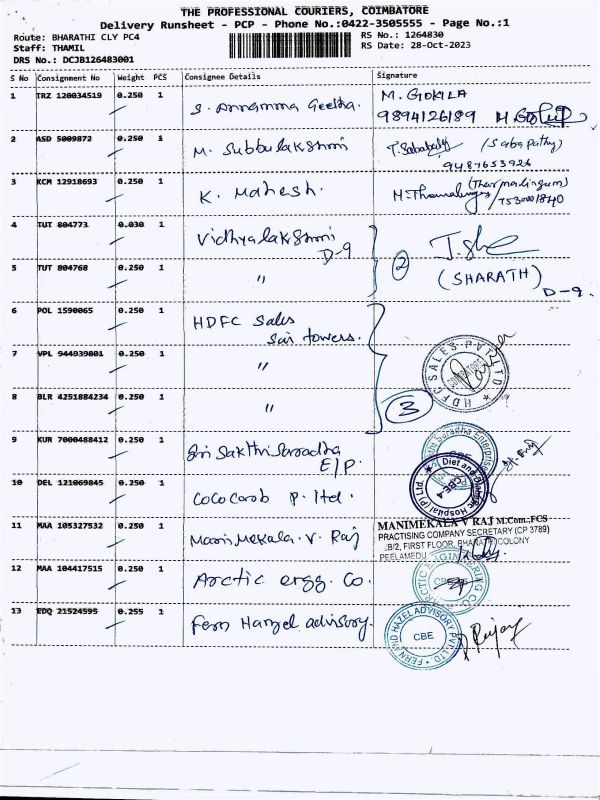 THE PROFESSIONAL COURIERS, COIMBATORE
Delivery Runsheet - PCP - Phone No.:0422-3505555 - Page No.:1
Route: BHARATHI CLY PC4
Staff: THAMIL
DRS No.: DCJB126483001
RS No.: 1264830
RS Date: 28-Oct-2023
S No Consignment No Weight PCS Consignee Details Signature
1 TRZ 120034519 0.250 1 S. Annamma Geetha. M. GOKILA
9894126189
2 ASD 5009872 0.250 1 M. Subbulakshmi T. Sababathy (Sabapathy)
9487653926
3 KCM 12918693 0.250 1 K. Mahesh.
4 TUT 804773 0.030 1 Vidhyalakshmi
D-9
2
5 TUT 804768 0.250 1 " (SHARATH)
D-9.
6 POL 1590065 0.250 1 HDFC Sales
Sai towers.
7 VPL 944939801 0.250 1 " HDFC SALES PVT LTD
8 BLR 4251884234 0.250 1 " 3
9 KUR 7000488412 0.250 1 Sri Sakthi Saradha
E/P.
Saradha Enterprises
CBE
10 DEL 121069845 0.250 1 Cococarb P. ltd.
Diet and Hospital (P) Ltd.
CBE 4
11 MAA 105327532 0.250 1 Manimekala. V. Raj
MANIMEKALA V RAJ M.Com.,FCS
PRACTISING COMPANY SECRETARY (CP 3789)
B/2, FIRST FLOOR, BHARATHI COLONY
PEELAMEDU
12 MAA 104417515 0.250 1 Arctic engg. Co.
ARCTIC ENGINEERING CO
CBE
13 EDQ 21524595 0.255 1 Fern Hazel advisory.
FERN AND HAZEL ADVISORY PVT. LTD.
CBE